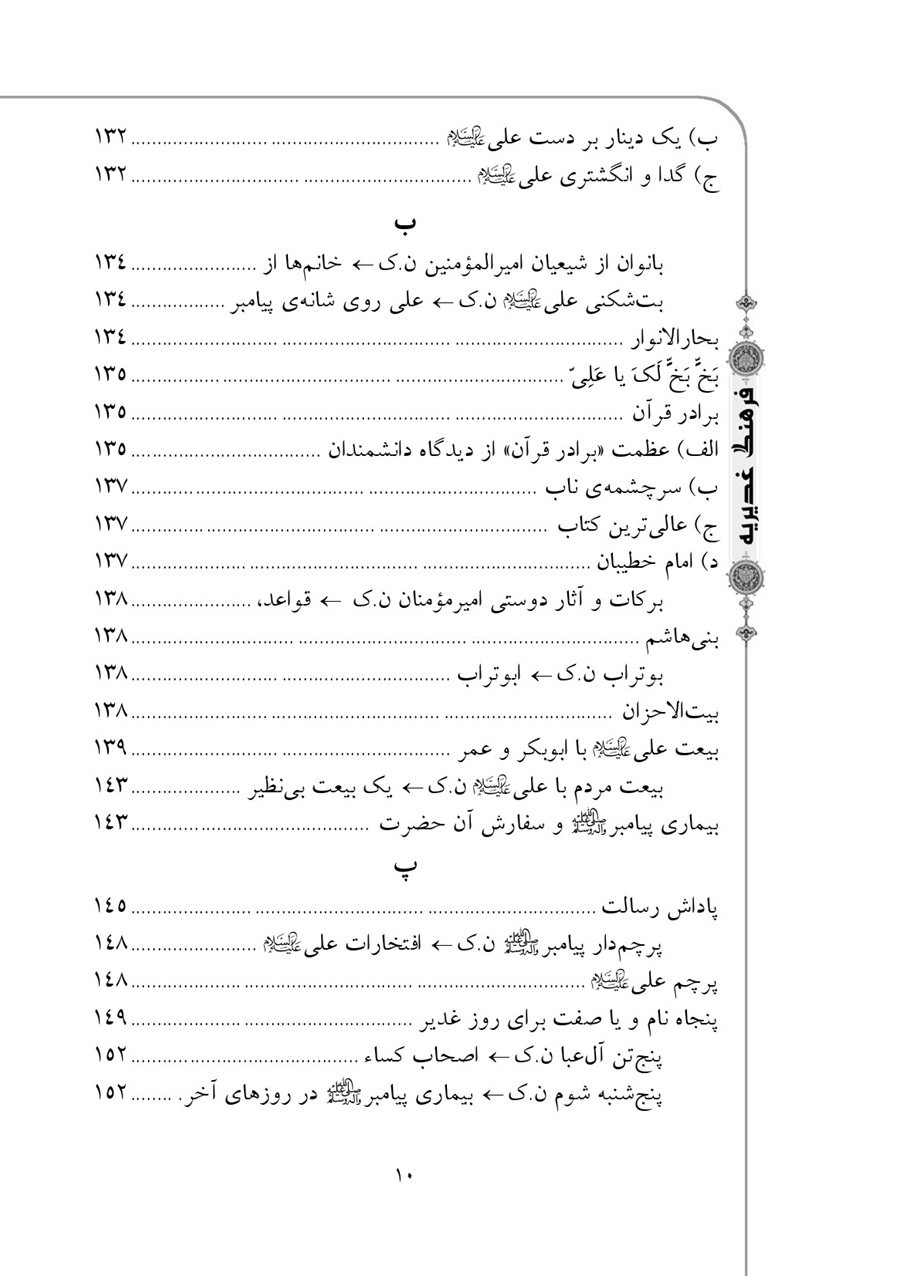 ب) یک دینار بر دست علی علیه‌السلام ........................................................... ۱۳۲
ج) گدا و انگشتری علی علیه‌السلام ........................................................... ۱۳۲
ب
بانوان از شیعیان امیرالمؤمنین ن.ک ← خانم‌ها از ........................ ۱۳٤
بت‌شکنی علی علیه‌السلام ن.ک ← علی روی شانه‌ی پیامبر .................. ۱۳٤
بحارالانوار ........................................................... ۱۳٤
بَخٍّ بَخٍّ لَکَ یا عَلِیّ ........................................................... ۱۳٥
برادر قرآن ........................................................... ۱۳٥
الف) عظمت «برادر قرآن» از دیدگاه دانشمندان .................................... ۱۳٥
ب) سرچشمه‌ی ناب ........................................................... ۱۳۷
ج) عالی‌ترین کتاب ........................................................... ۱۳۷
د) امام خطیبان ........................................................... ۱۳۷
برکات و آثار دوستی امیرمؤمنان ن.ک ← قواعد، ....................... ۱۳۸
بنی‌هاشم ........................................................... ۱۳۸
بوتراب ن.ک ← ابوتراب ........................................................... ۱۳۸
بیت‌الاحزان ........................................................... ۱۳۸
بیعت علی علیه‌السلام با ابوبکر و عمر ........................................................... ۱۳۹
بیعت مردم با علی علیه‌السلام ن.ک ← یک بیعت بی‌نظیر ..................... ۱٤۳
بیماری پیامبر صلی‌الله‌علیه‌وآله و سفارش آن حضرت ............................................. ۱٤۳
پ
پاداش رسالت ........................................................... ۱٤٥
پرچم‌دار پیامبر صلی‌الله‌علیه‌وآله ن.ک ← افتخارات علی علیه‌السلام ........................ ۱٤۸
پرچم علی علیه‌السلام ........................................................... ۱٤۸
پنجاه نام و یا صفت برای روز غدیر ..................................................... ۱٤۹
پنج‌تن آل‌عبا ن.ک ← اصحاب کساء ........................................... ۱٥۲
پنج‌شنبه شوم ن.ک ← بیماری پیامبر صلی‌الله‌علیه‌وآله در روزهای آخر. ........ ۱٥۲
فرهنگ غدیریه
۱۰